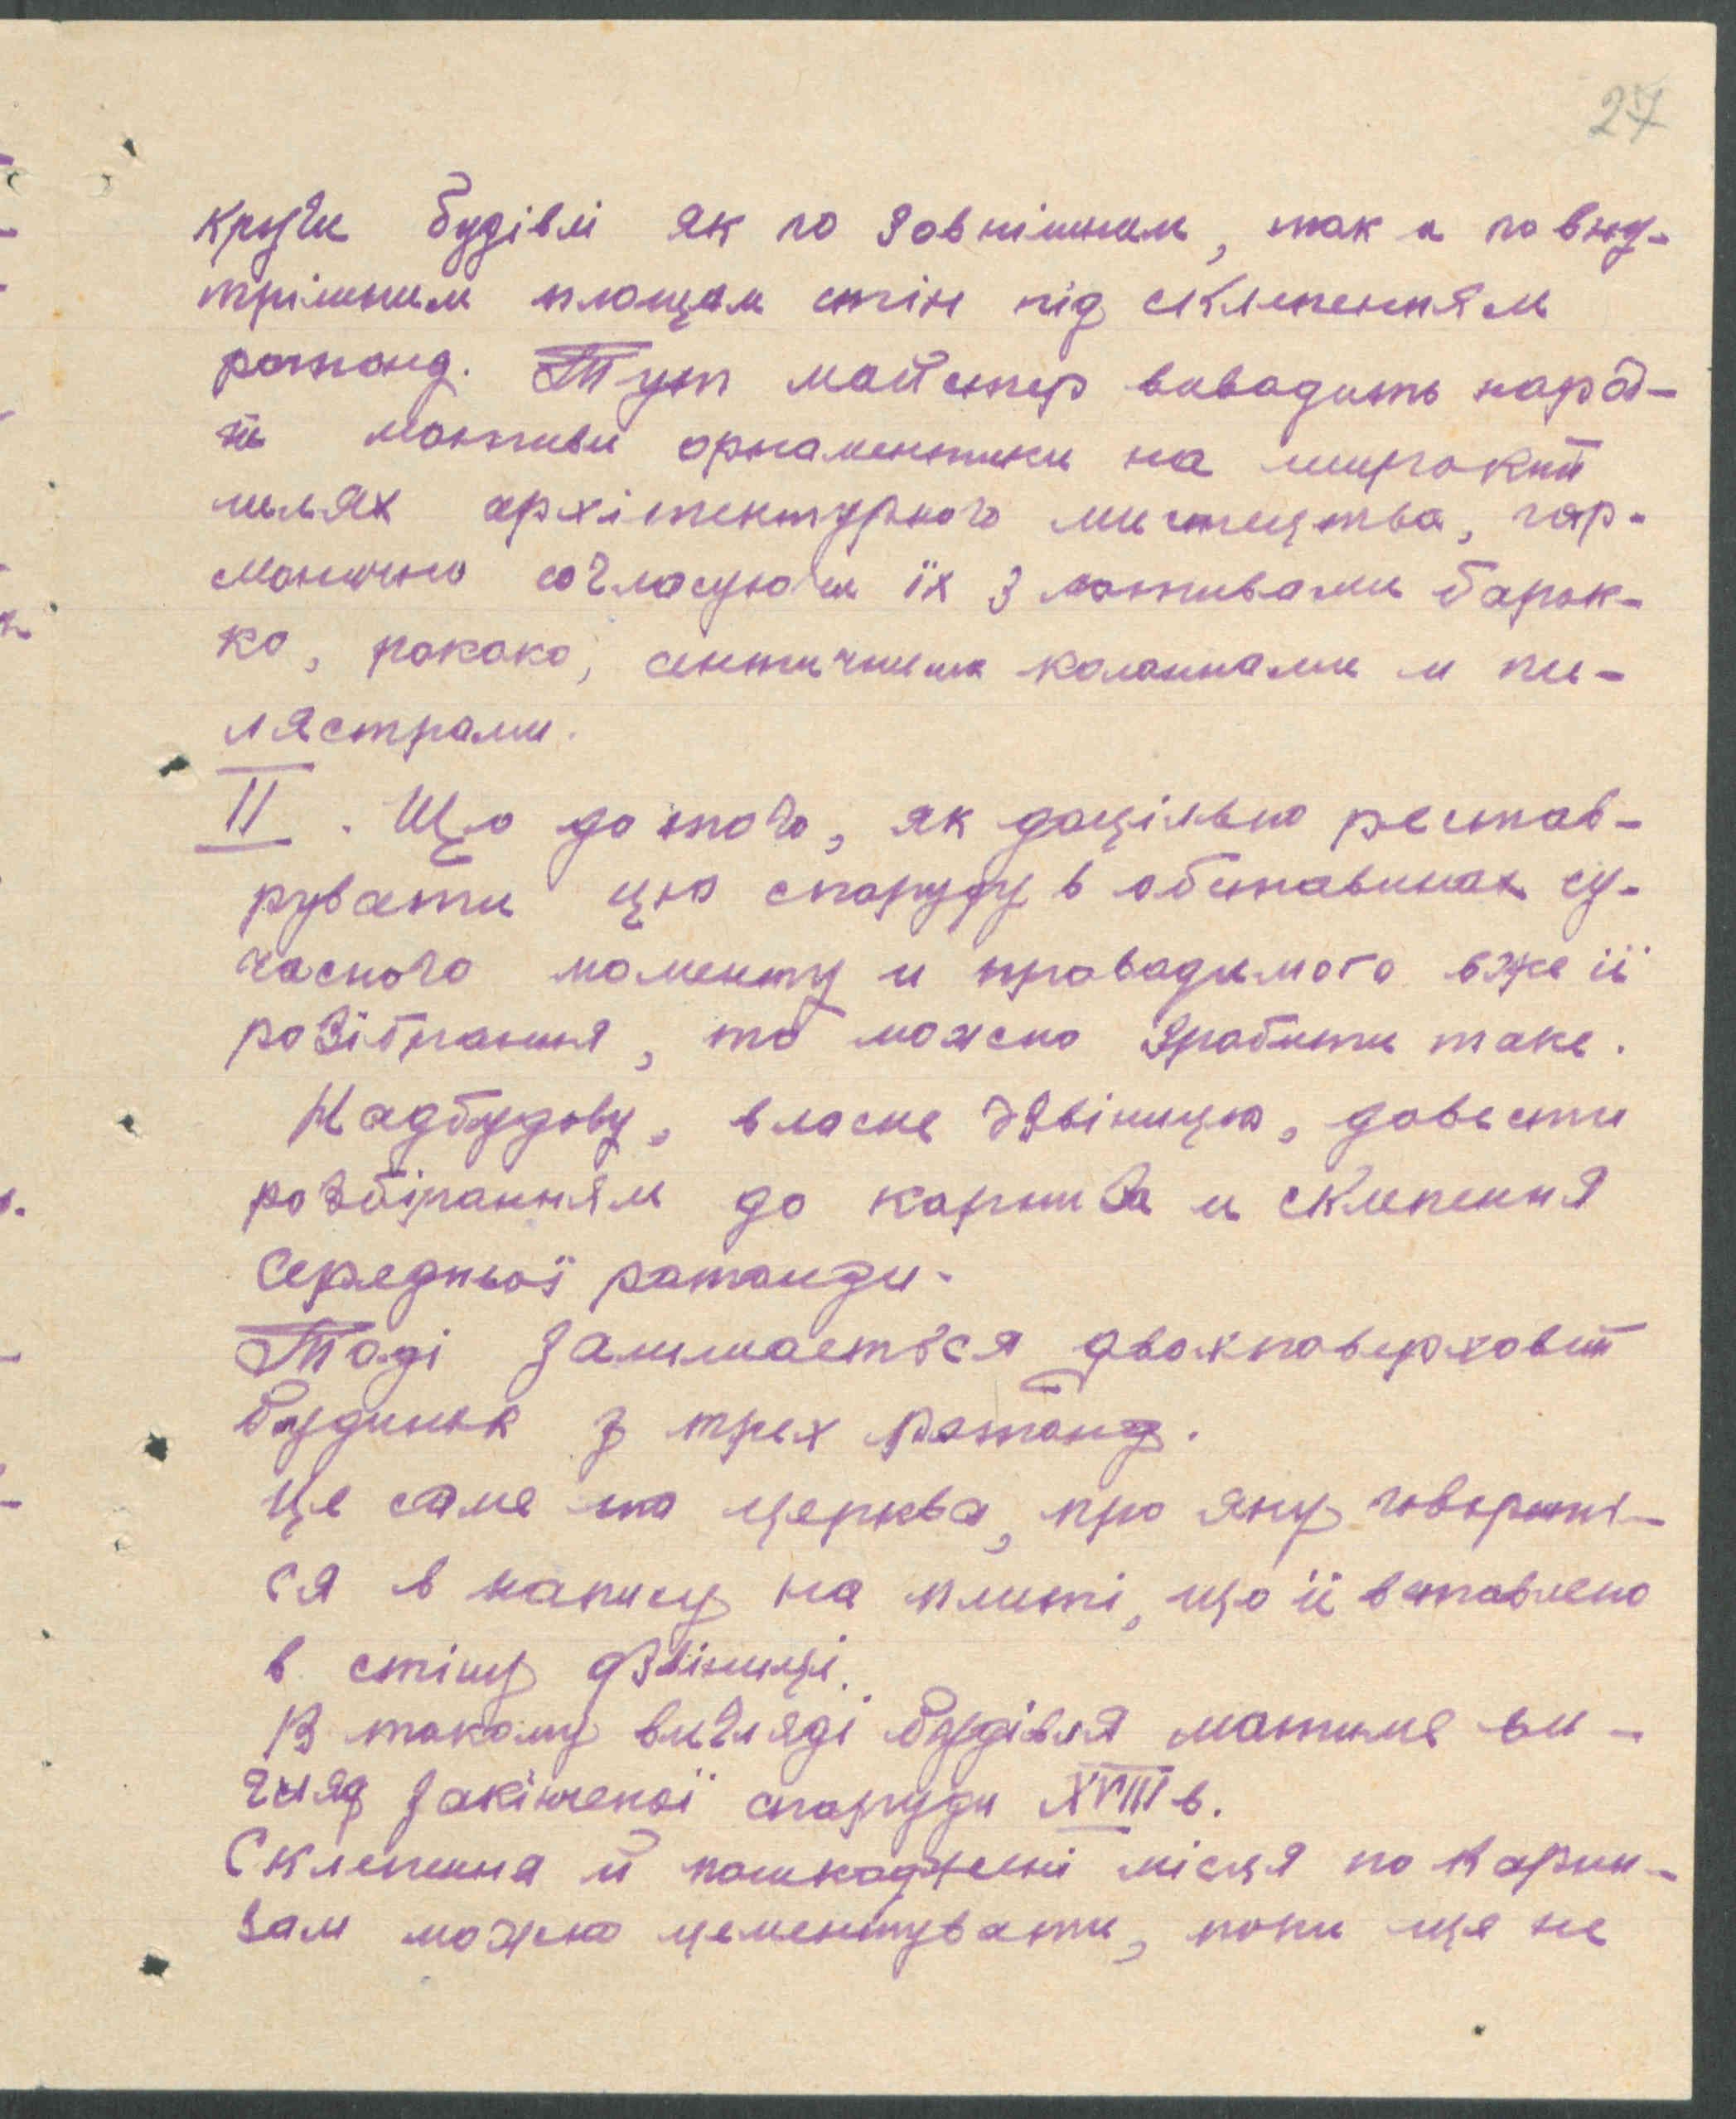 27
круги будівлі як по зовнішнім, так и по вну-
трішнім площам стін під склепенням
ротонд. Тут майстер виводить народ-
ні мотиви орнаментики на широкий
шлях архітектурного мистецтва, гар-
монично согласуючи їх з мотивами барок-
ко, рококо, античними колоннами и пи-
лястрами.
II. Що до того, як доцільно рестав-
рувати цю споруду в обставинах су-
часного моменту и проводимого вже її
розібрання, то можно зробити таке.
Надбудову, власне дзвіницю, довести
розбіранням до карниза и склепення
середньої ротонди.
Тоді залишається двохповерховий
будинок з трех ротонд.
Це саме та церква, про яку говорить-
ся в напису на плиті, що її вставлено
в стіну дзвіниці.
В такому вигляді будівля матиме ви-
гляд закінченої споруди XVIII в.
Склепіння й пошкоджені місця по карни-
зам можно цементувати, поки ще не